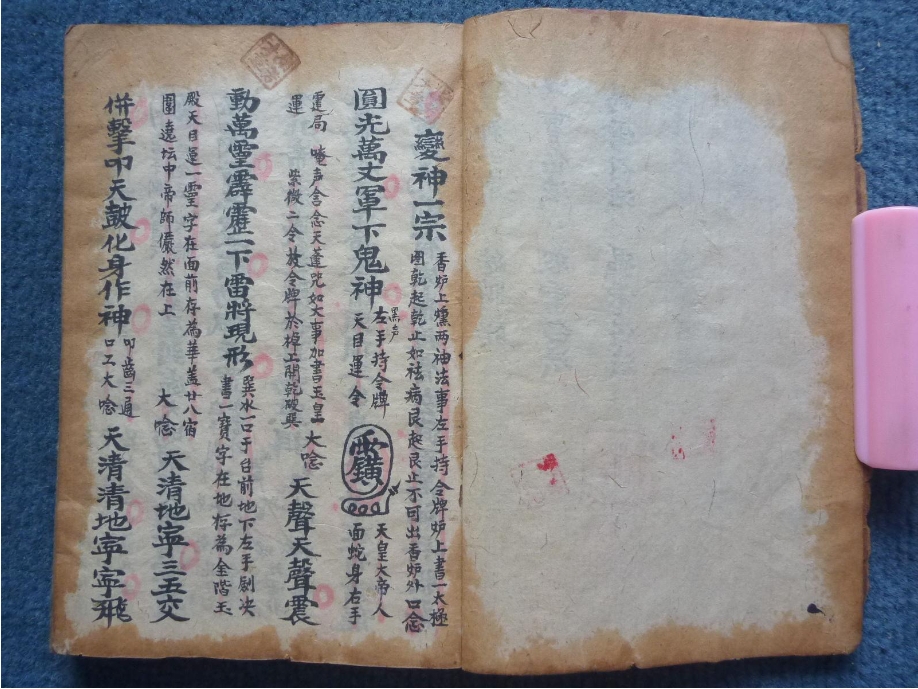 變神一宗
香炉上燻两袖法事左手持令牌炉上書一太極
圈乾起乾止如祛病艮起艮止不可出香炉外口念
圓光萬丈軍下鬼神
黑声
左手持令牌
天目運令
天皇大帝人
面蛇身右手
雷局 唵声舍念天蓬咒如大事加書玉皇
運 紫微二令枝令牌於棹上開乾破巽
大唸
天聲天聲震
動萬霊霹靂一下雷將現形
巽水一口于台前地下左手劍决
書一寶字在地存為金階玉
殿天目運一霊字在面前存為華盖廿八宿
圍遶坛中帝師儼然在上
大唸
天清地寕三五交
併擊叩天鼓化身作神
叩齒三通
口工大唸
天清清地寕寕飛